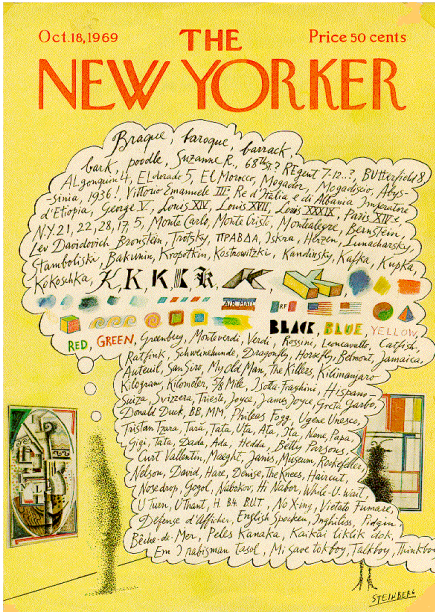 Oct. 18, 1969
THE
Price 50 cents
NEW YORKER
Braque, baroque, barrack,
bark, poodle, Suzanne R., 68th St.? REgent 7-12..?, BUtterfield 8
ALgonquin 4, ELdorado 5, El Morocco, Mogador, Mogadiscio, Abys-
sinia, 1936! Vittorio Emanuele III, Re d'Italia e di Albania, Imperatore
d'Etiopia, George V, Louis XIV, Louis XVI, Louis XXXIX, Paris XIVe
N.Y. 21, 22, 28, 17, 5, Monte Carlo, Monte Cristo, Montenegro, Bernstein,
Lev Davidovich Bronstein, Trotsky, ПРАВДА, Iskra, Herzen, Lunacharsky,
Stamboliski, Bakunin, Kropotkin, Kostrowitzki, Kandinsky, Kafka, Kupka,
Kokoschka, K, K, K K K K
AIR MAIL
RF
BLACK, BLUE, YELLOW,
RED, GREEN, Greenberg, Monteverdi, Verdi, Rossini, Leoncavallo, Catfish,
Ratfink, Schweinehunde, Dragonfly, Horsefly, Belmont, Jamaica,
Auteuil, San Siro, My Old Man, The Killers, Kilimanjaro
Kilogram, Kilometer, 5/8 Mile, Isotta Fraschini, Hispano-
Suiza, Svizzera, Trieste, Joyce, James Joyce, Greta Garbo,
Donald Duck, BB, MM, Phileas Fogg, Ugene Unesco,
Tristan Tzara, Tara, Tata, Uta, Ata, Ita, Nana, Papa,
Gigi, Tata, Dada, Ada, Hedda, Betty Parsons,
Curt Valentin, Maeght, Janis, Museum, Rockefeller,
Nelson, David, Hare, Denise, The Knees, Haircut,
Nosedrop, Gogol, Nabokov, Hi Nabor, While U Wait
U Turn, U Thant, H. 84 BUT, No Xing, Vietato Fumare,
Défense d'Afficher, English Spoken, Inghliss, Pidgin,
Bêche-de-Mer, Peles Kanaka, Kaikai liklik dok,
Em I rabisman tasol, Mi save tok boy, Talkboy, Thinkboy
STEINBERG